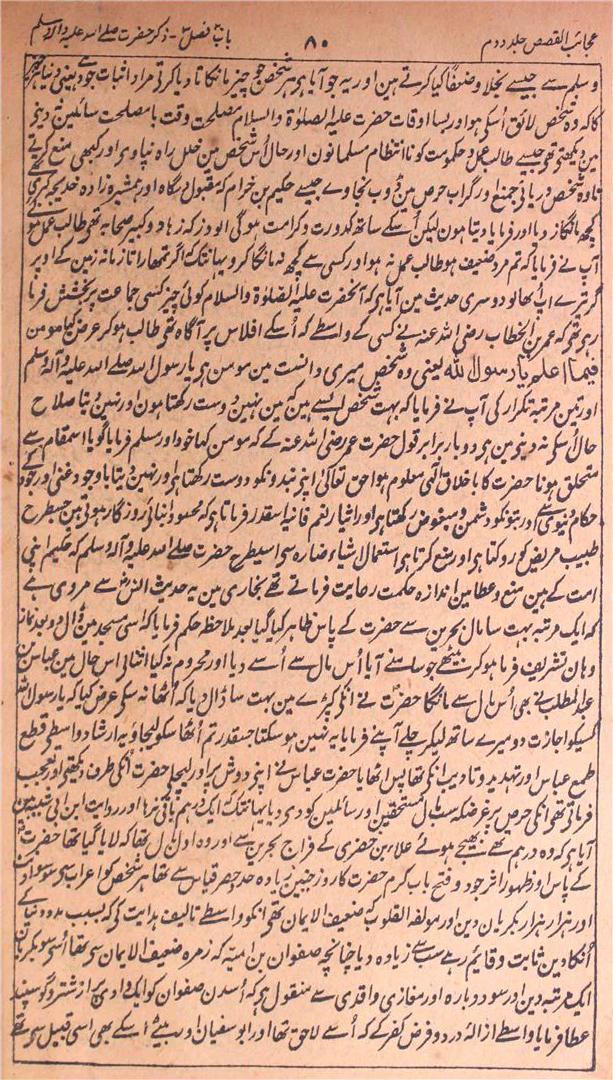 عجائب القصص جلد دوم ۸۰ باب فصل - ذکر حضرت صلے اللہ علیہ وآلہ وسلم
وسلم سے جیسے بخلا وضعفا کیا کرتے ہین اور یہ جو آیا ہی ہر شخص جو چیز مانگتا دیا کرتی مراد اثبات جود ہی یعنی
کا کہ وہ شخص لائق اُسکی ہو اور بسا اوقات حضرت علیہ الصلوٰۃ والسلام مصلحت وقت یا مصلحت سائلین دینی
مین دیکھتی تھی جیسے طالب عمل و حکومت کو تا انتظام مسلمانون اور حال اُس شخص مین خلل راہ نپاوی اور کبھی منع کرتے
تا وہ شخص دریای جمع اور گرداب حرص مین ڈوب نجاوے جیسے حکیم بن خرام کہ مقبول درگاہ اور ہمشیرہ زادہ خدیجہ کبری
کچھ مانگا دیا اور فرمایا دیتا ہون لیکن اُسکے ساتھ کدورت وکرامت ہوگی ابوذر کہ زہاد و کبیر صحابہ تھی طالب عمل ہو
آپ نے فرمایا کہ تم مرد ضعیف ہو طالب عمل نہ ہو اور کسی سے کچھ نہ مانگا کرو یہانتک کہ اگر تمھارا تازیانہ زمین کے اوپر
گر پڑے آپ اُٹھالو دوسری حدیث مین آیا ہی کہ آنحضرت علیہ الصلوٰۃ والسلام کوئی چیز کسی جماعت پر بخشش فرما
رہی تھی کہ عمر بن الخطاب رضی اللہ عنہ نے کسی کے واسطے کہ اُسکے افلاس پر آگاہ تھی طالب ہو کر عرض کیا مومن
فیما اعلم یا رسول اللہ یعنی وہ شخص میری دانست مین مومن ہی یا رسول اللہ صلے اللہ علیہ وآلہ وسلم
اور تین مرتبہ تکرار کی آپ نے فرمایا کہ بہت شخص ایسے ہین کہ مین نہین دوست رکھتا ہون اور نہین دیتا صلاح
حال اُسکی نہ دینی مین ہی دو بار برابر قول حضرت عمر رضی اللہ عنہ کے کہ مومن کہا خود اور مسلم فرمایا گویا اسمقام سے
متخلق ہونا حضرت کا باخلاق الٰہی معلوم ہوا حق تعالیٰ اپنی بندونکو دوست رکھتا ہی اور نہین دیتا باوجود غنی اور جود کے
حکام دنیوی سے اور بتونکو دشمن ومبغوض رکھتا ہی اور انہار نعم فانیا سقدر فرماتا ہی کہ محسود ابنای روزگار ہوتی ہین جسطرح
طبیب مریض کو روکتا ہی اور منع کرتا ہی استعمال اشیاء ضارہ سی اسیطرح حضرت صلے اللہ علیہ وآلہ وسلم کہ حکیم اپنی
امت کے ہین منع وعطا مین اندازہ حکمت رعایت فرماتے تھے بخاری مین یہ حدیث انس سے مروی ہے
کہ ایک مرتبہ بہت سا مال بحرین سے حضرت کے پاس ظاہر کیا گیا بعد ملاحظہ حکم فرمایا کہ اسی مسجد مین ڈال دو بعد نماز
وہان تشریف فرما ہو کر بیٹھے جو سامنے آیا اُس مال سے اُسے دیا اور محروم نہ کیا اتنائی اس حال مین عباس بن
عبد المطلب نے بھی اُس مال سے مانگا حضرت نے انکی کپڑے مین بہت سا ڈال دیا کہ اُٹھا نہ سکی عرض کیا کہ یا رسول اللہ
کسیکو اجازت دو میرے ساتھ لیکر چلے آپنے فرمایا یہ نہین ہوسکتا جسقدر تم اُٹھا سکو لیجاؤ یہ ارشاد واسطی قطع
طمع عباس اور تہدید وتادیب انکی تھا پس اٹھایا حضرت عباس نے اپنی دوش پر اور لیچلی حضرت اُنکی طرف دیکھتی اور تعجب
فرماتی تھی انکی حرص پر غرضکہ سب مال مستحقین اور سائلین کو دی دیا یہانتک کہ ایک درہم باقی نرہا اور روایت ابن ابی شیبہ مین
آیا ہی کہ وہ درہم تھے بھیجے ہوئے علاء بن حضرمی کے خراج بحرین سے اور وہ اول مال تھا کہ لایا گیا تھا حضرت
کے پاس اور ظہور اثر جود وفتح باب کرم حضرت کا روز حنین زیادہ حد حصر قیاس سے تھا ہر شخص کو اعراب سی سو سو اونٹ
اور ہزار ہزار بکریان دین اور مولفہ القلوب کہ ضعیف الایمان تھی انکو واسطے تالیف ہدایت کی کہ بسبب مدد دنیا کے
اُنکا دین ثابت وقائم رہے سب سے زیادہ دیا چنانچہ صفوان بن امیہ کہ زمرہ ضعیف الایمان سی تھا اُسے سو بکریان
ایک مرتبہ دین اور سو دوبارہ اور مغازی واقدی سے منقول ہی کہ اُسدن صفوان کو ایک وادی پر از شتر وگوسپند
عطا فرمایا واسطے ازالہ درد و مرض کفر کے کہ اُسے لاحق تھا اور ابو سفیان اور بیٹے اسکے بھی اسی قبیل سی تھے